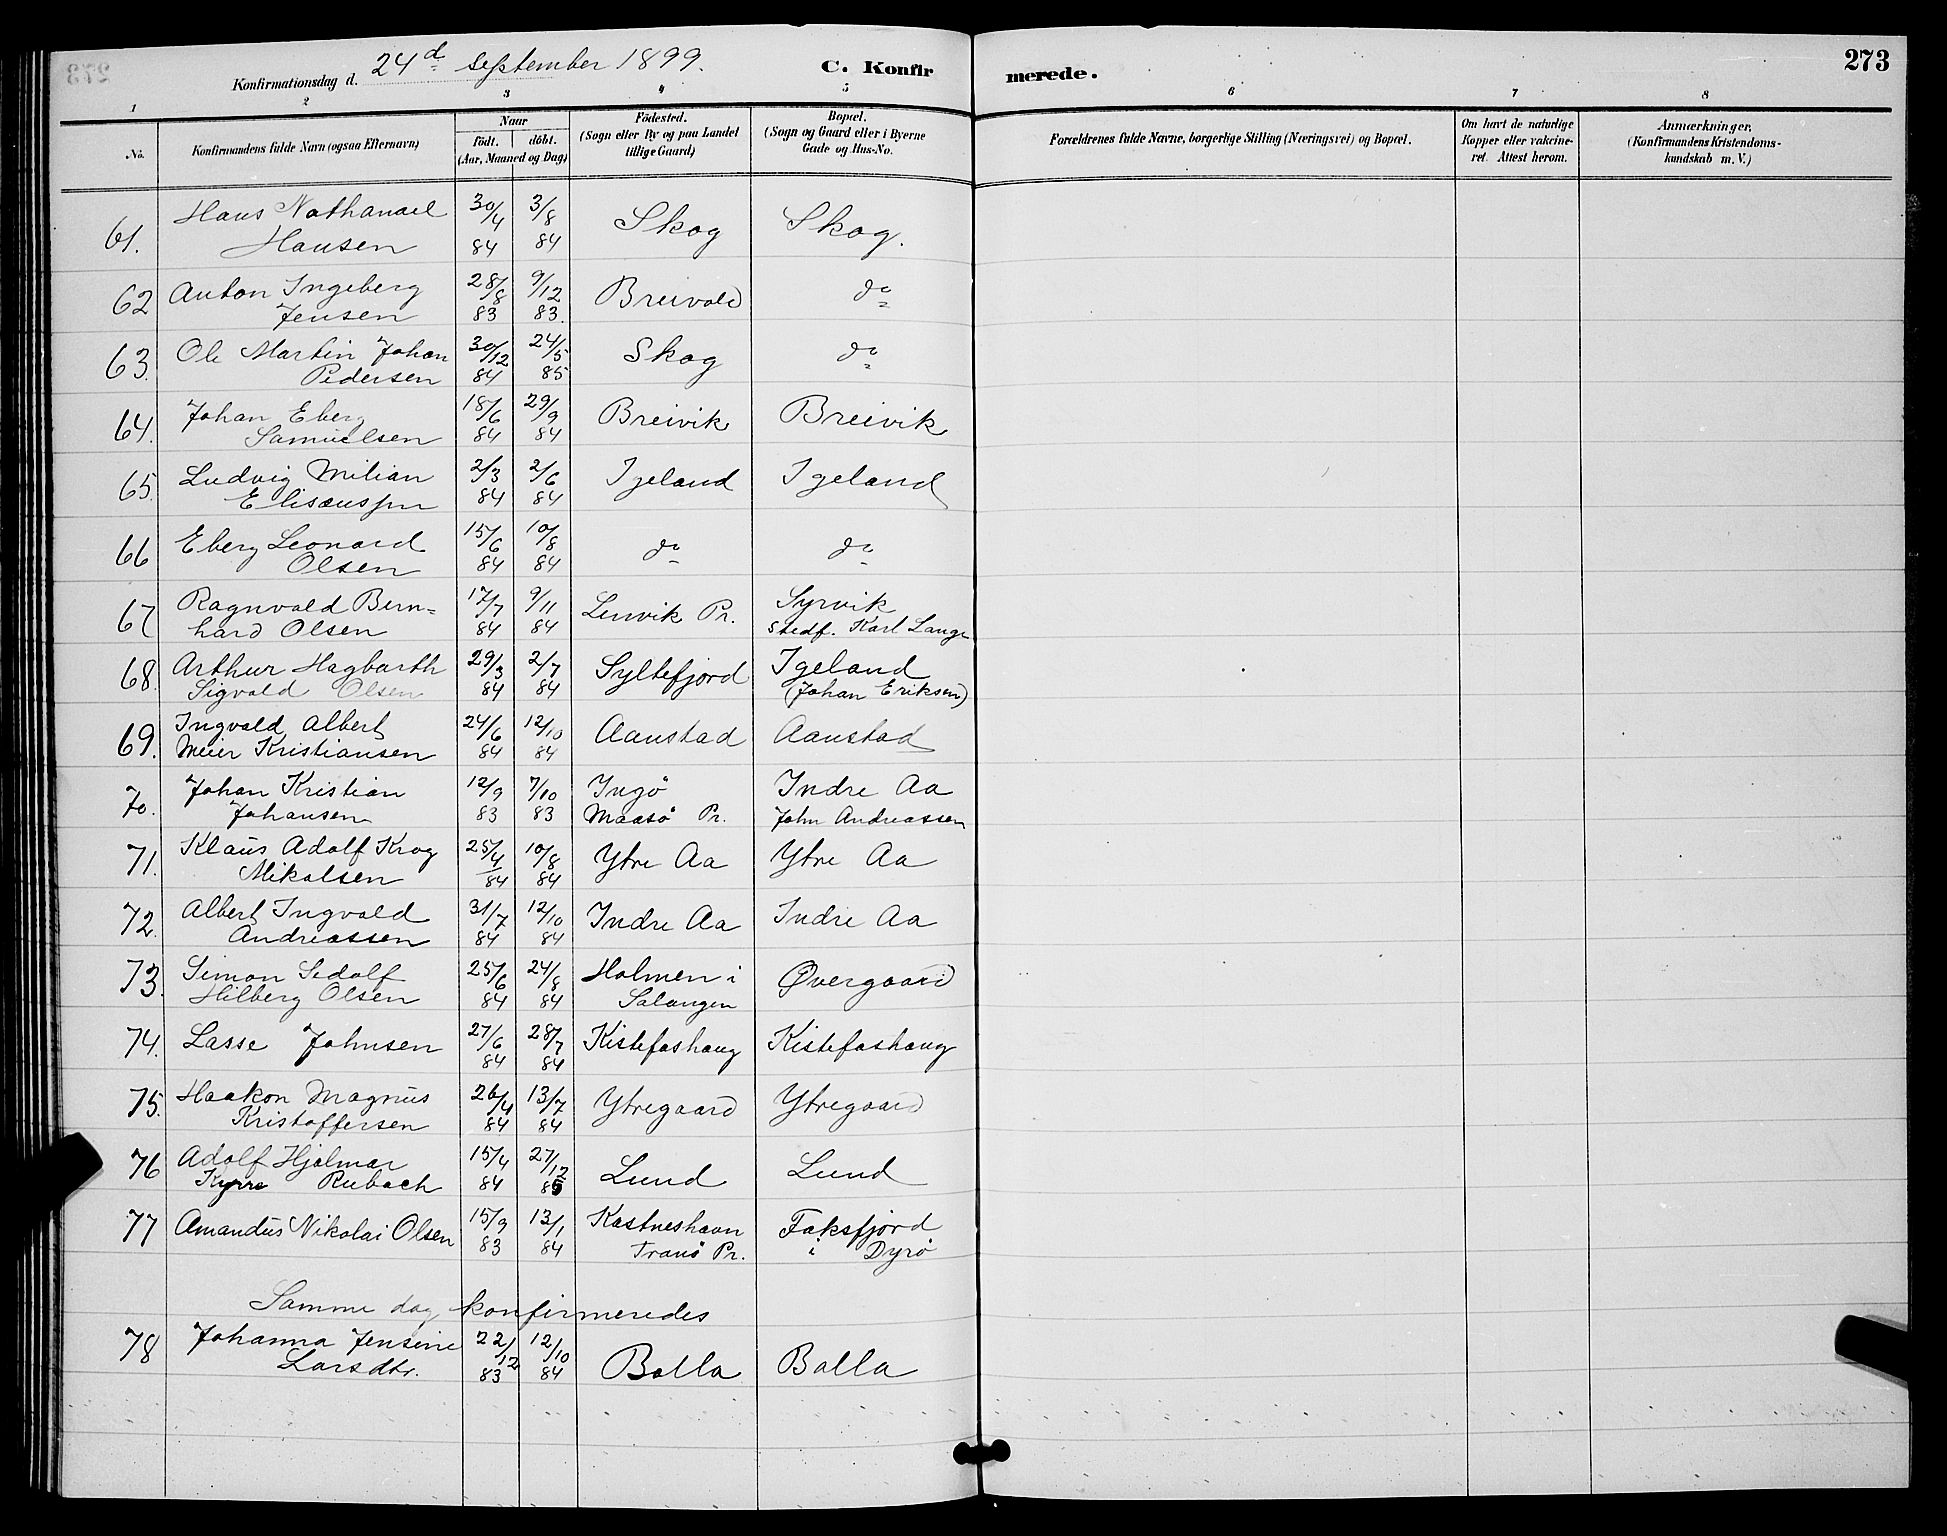 Konfirmationsdag d. 24d September 1899. C. Konfirmerede. 273
1 2 3 4 5 6 7 8
No. Konfirmandens fulde Navn (ogsaa Efternavn) Naar födt. döbt. (Aar, Maaned og Dag) Födested. (Sogn eller By og paa Landet tillige Gaard) Bopæl. (Sogn og Gaard eller i Byerne Gade og Hus-No. Forældrenes fulde Navne, borgerlige Stilling (Næringsvei) og Bopæl. Om havt de naturlige Kopper eller vakcineret. Attest herom. Anmærkninger. (Konfirmandens Kristendomskundskab m. V.)
61. Hans Nathanael 30/4 3/8 Skog Skog.
Hansen 84 84
62 Anton Ingeberg 28/8 9/12 Breivold do
Jensen 83 83.
63. Ole Martin Johan 30/12 24/5 Skog do
Pedersen 84 85
64. Johan Eberg 18/6 29/9 Breivik Breivik
Samuelsen 84 84
65. Ludvig Milian 2/3 2/6 Igeland Igeland
Elisæussen 84 84
66 Eberg Leonard 15/6 10/8 do do
Olsen 84 84
67 Ragnvald Bern= 17/7 9/11 Lenvik Pr. Syrvik
hard Olsen 84 84 Stedf. Karl Lange
68. Arthur Hagbarth 29/3 2/7 Syltefjord Igeland
Sigvald Olsen 84 84 (Johan Eriksen)
69. Ingvald Albert 24/6 12/10 Aanstad Aanstad
Meier Kristiansen 84 84
70. Johan Kristian 12/9 7/10 Ingö Indre Aa
Johansen 83 83 Maasö Pr. John Andreassen
71. Klaus Adolf Krog 25/4 10/8 Ytre Aa Ytre Aa
Mikalsen 84 84
72. Albert Ingvald 31/7 12/10 Indre Aa Indre Aa
Andreassen 84 84
73. Simon Sedolf 25/6 24/8 Holmen i Øvergaard
Hilberg Olsen 84 84 Salangen
74. Lasse Johnsen 27/6 28/7 Kistefoshaug Kistefoshaug
84 84
75. Haakon Magnus 26/4 13/7 Ytregaard Ytregaard
Kristoffersen 84 84
76 Adolf Hjalmar 15/4 27/12 Lund Lund
Kyrre Rubach 84 85
77 Amandus Nikolai Olsen 15/9 13/1 Kastneshavn Faksfjord
83 84 Tranö Pr. i Dyrö
Samme dag konfirmeredes
78 Johanna Jensine 22/12 12/10 Balla Balla
Larsdtr. 83 84